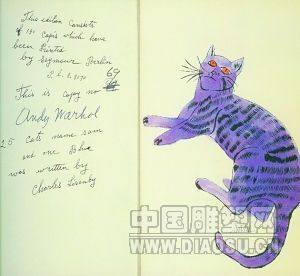 This edition consists
of 190 copies which have
been Printed
by Seymour Berlin
69
This is copy no
Andy Warhol
25 Cats name sam
and one Blue
was written by
Charles Lisanby
中国雕塑网
WWW.DIAOSU.CN